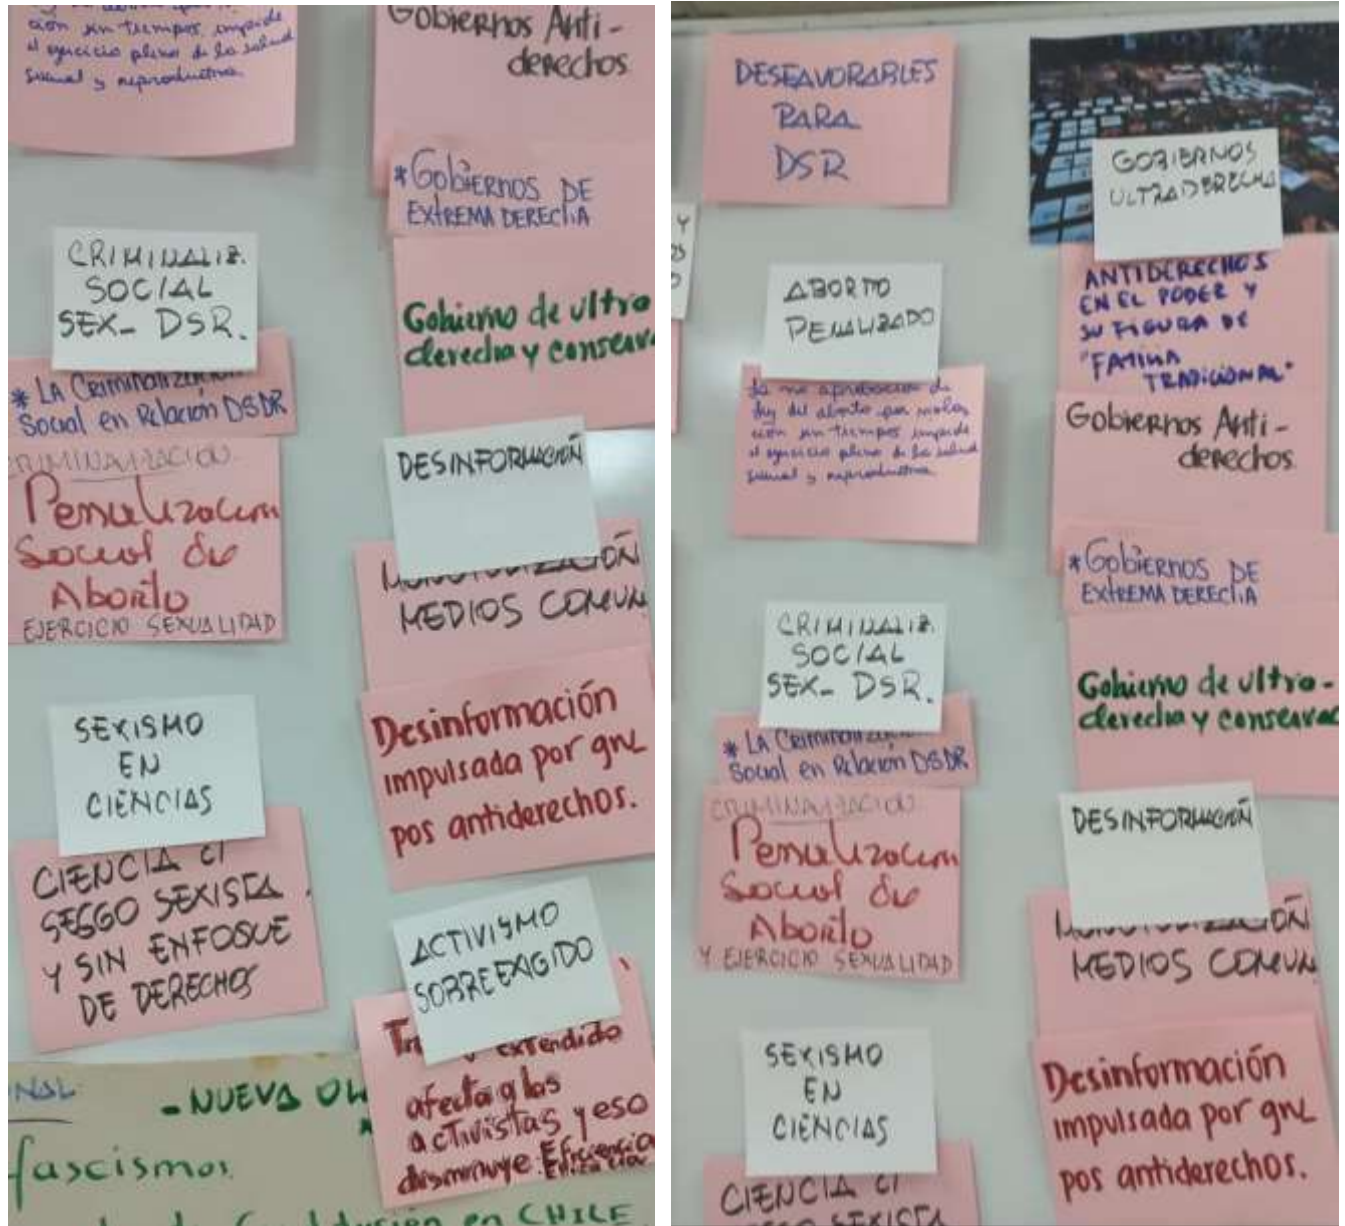 ción sin tiempos impide
el ejercicio pleno de la salud
sexual y reproductiva.
CRIMINALIZ.
SOCIAL
SEX- DSR.
* LA Criminalización
Social en Relación DSDR
CRIMINALIZACIÓN
Penalización
Social de
Aborto
EJERCICIO SEXUALIDAD
SEXISMO
EN
CIENCIAS
CIENCIA C/
SESGO SEXISTA
Y SIN ENFOQUE
DE DERECHOS
Gobiernos Anti-
derechos
*Gobiernos DE
EXTREMA DERECHA
Gobierno de ultra
derecha y conserv
DESINFORMACIÓN
MEDIOS COMUN
Desinformación
impulsada por gru
pos antiderechos.
ACTIVISMO
SOBREEXIGIDO
extendido
afecta a las
activistas y eso
disminuye Eficiencia
NAL
- NUEVA OL
fascismos
en CHILE
DESFAVORABLES
PARA
DSR
ABORTO
PENALIZADO
La no aprobación de
ley del aborto por viola
ción sin tiempos impide
el ejercicio pleno de la salud
sexual y reproductiva.
CRIMINALIZ.
SOCIAL
SEX- DSR.
* LA Criminalización
Social en Relación DSDR
CRIMINALIZACIÓN
Penalización
Social de
Aborto
Y EJERCICIO SEXUALIDAD
SEXISMO
EN
CIENCIAS
CIENCIA C/
SESGO SEXISTA
GOBIERNOS
ULTRADERECHA
ANTIDERECHOS
EN EL PODER Y
SU FIGURA DE
"FAMILIA
TRADICIONAL"
Gobiernos Anti-
derechos
*Gobiernos DE
EXTREMA DERECHA
Gobierno de ultra-
derecha y conservad
DESINFORMACIÓN
MEDIOS COMUN
Desinformación
impulsada por gru
pos antiderechos.